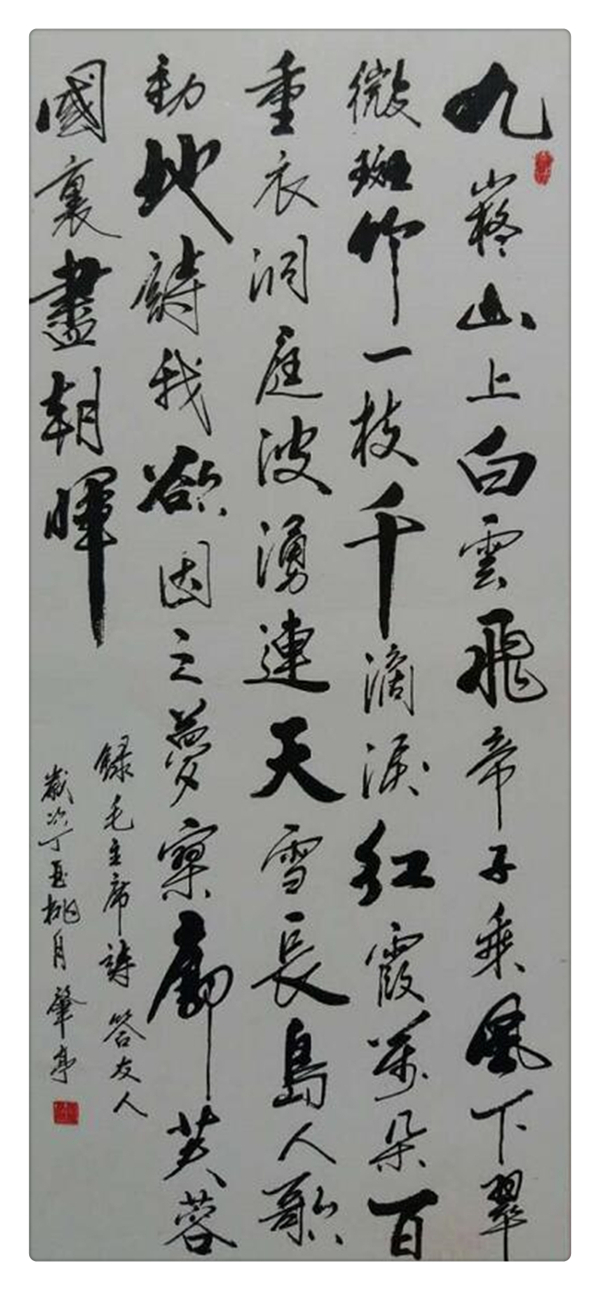 九嶷山上白雲飛帝子乘風下翠
微斑竹一枝千滴淚紅霞萬朵百
重衣洞庭波湧連天雪長島人歌
動地詩我欲因之夢寥廓芙蓉
國裏盡朝暉
錄毛主席詩答友人
歲次丁酉桃月肇亭